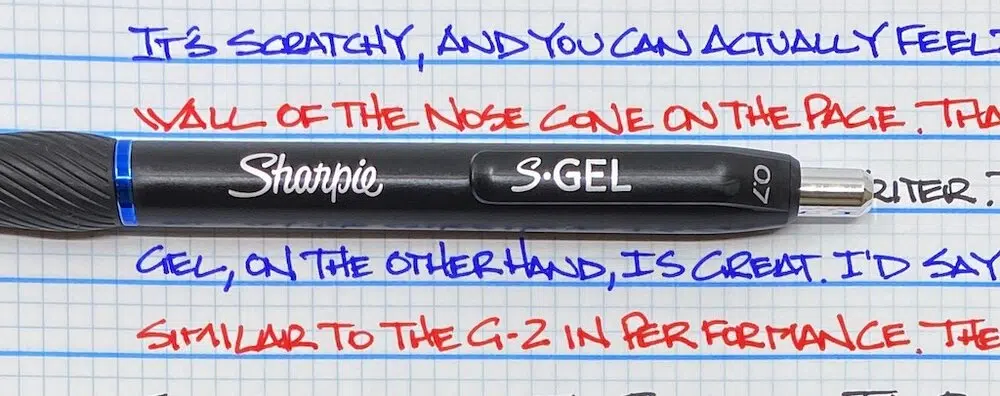 IT'S SCRATCHY, AND YOU CAN ACTUALLY FEEL
WALL OF THE NOSE CONE ON THE PAGE. THA
Sharpie S·GEL 0.7
RITER.
GEL, ON THE OTHER HAND, IS GREAT. I'D SAY
SIMILAR TO THE G-2 IN PERFORMANCE. THE